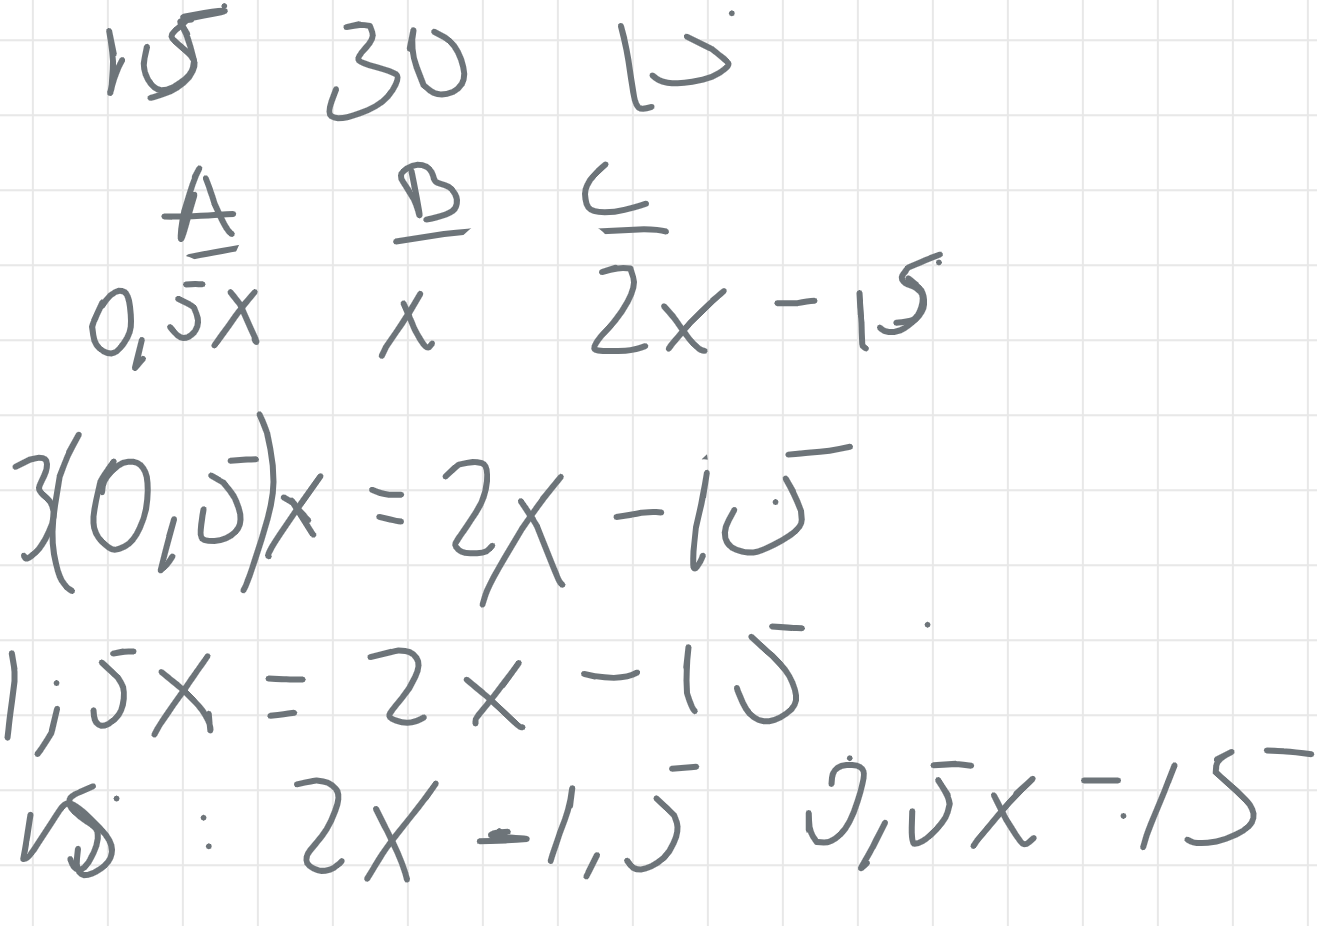 15 30 15
A B C
0,5x x 2x - 15
3(0,5)x = 2x - 15
1,5x = 2x - 15
15 : 2x - 1,5 0,5x - 15